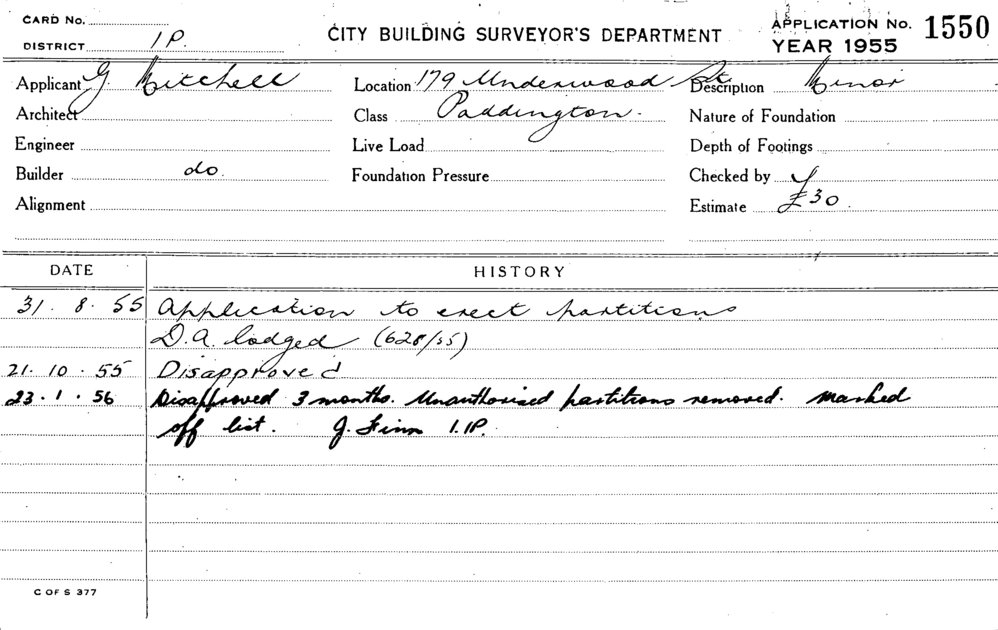 CARD No.
DISTRICT 1P.
CITY BUILDING SURVEYOR'S DEPARTMENT
APPLICATION No. 1550
YEAR 1955
Applicant G Mitchell
Location 179 Underwood St.
Description Minor
Architect
Class Paddington.
Nature of Foundation
Engineer
Live Load
Depth of Footings
Builder do.
Foundation Pressure
Checked by
Alignment
Estimate £30.
DATE HISTORY
31. 8. 55 Application to erect partitions
D.A. lodged (628/55)
21. 10. 55 Disapproved
23. 1. 56 Disapproved 3 months. Unauthorised partitions removed. Marked
off list. J. Finn 1.1P.
C OF S 377